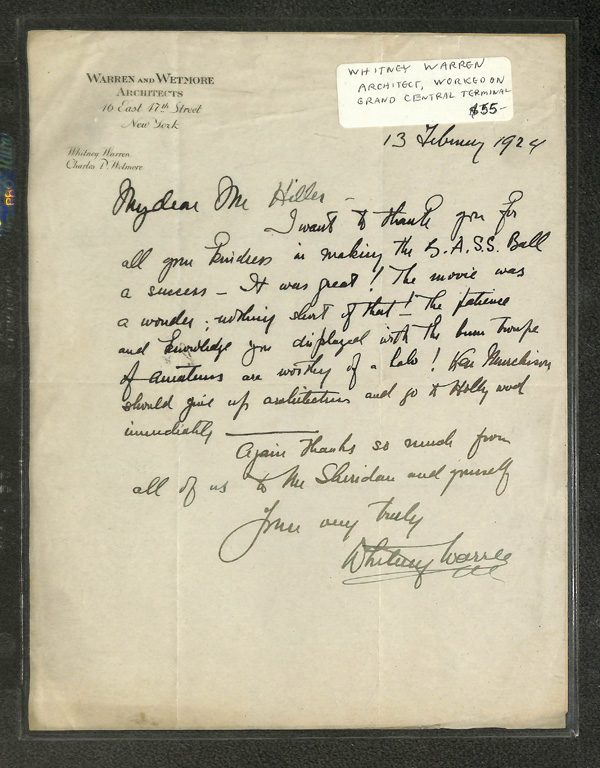 WARREN AND WETMORE
ARCHITECTS
16 East 47th Street
New York
Whitney Warren
Charles D. Wetmore
WHITNEY WARREN
ARCHITECT, WORKED ON
GRAND CENTRAL TERMINAL
$55-
13 February 1924
My dear Mr Hiller -
I want to thank you for
all your kindness in making the B.A.S.S. Ball
a success - It was great! The movie was
a wonder; nothing short of that! - the patience
and knowledge you displayed with the bum troupe
of amateurs are worthy of a halo! Ken Murchison
should give up architecture and go to Hollywood
immediately
Again thanks so much from
all of us to Mr Sheridan and yourself
Yours very truly
Whitney Warren